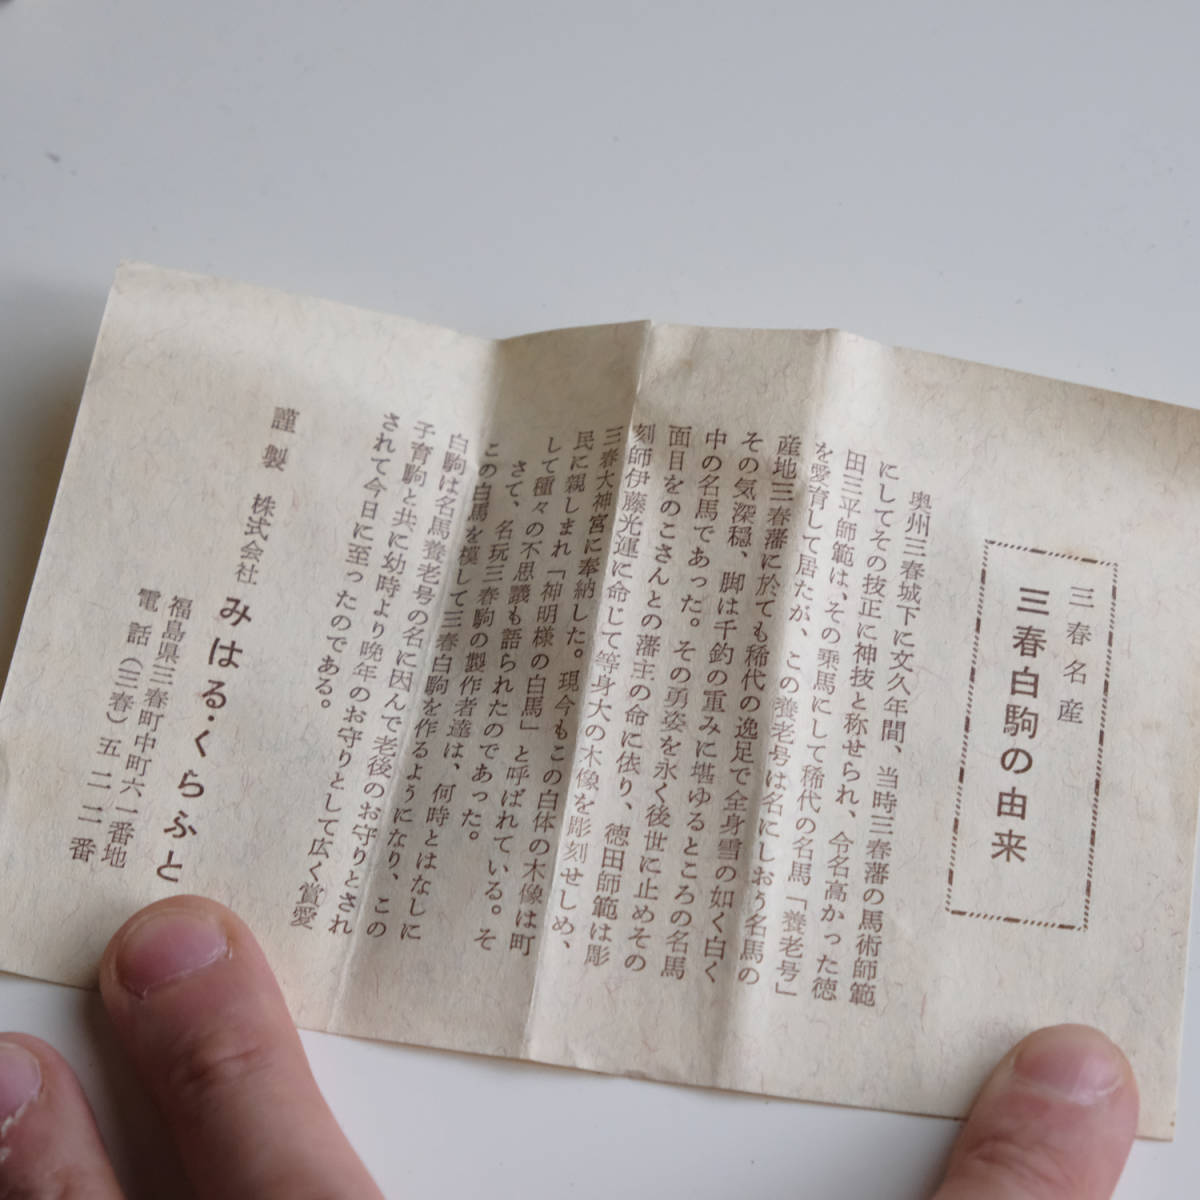 三春名産
三春白駒の由来
奥州三春城下に文久年間、当時三春藩の馬術師範
にしてその技正に神技と称せられ、令名高かった徳
田三平師範は、その乗馬にして稀代の名馬「養老号」
を愛育して居たが、この養老号は名にしおう名馬の
産地三春藩に於ても稀代の逸足で全身雪の如く白く
その気深穏、脚は千釣の重みに堪ゆるところの名馬
中の名馬であった。その勇姿を永く後世に止めその
面目をのこさんとの藩主の命に依り、徳田師範は彫
刻師伊藤光運に命じて等身大の木像を彫刻せしめ、
三春大神宮に奉納した。現今もこの白体の木像は町
民に親しまれ「神明様の白馬」と呼ばれている。そ
して種々の不思議も語られたのであった。
さて、名玩三春駒の製作者達は、何時とはなしに
この白馬を模して三春白駒を作るようになり、この
白駒は名馬養老号の名に因んで老後のお守りとされ
子育駒と共に幼時より晩年のお守りとして広く賞愛
されて今日に至ったのである。
謹製 株式会社 みはる・くらふと
福島県三春町中町六一番地
電話(三春)五二二番